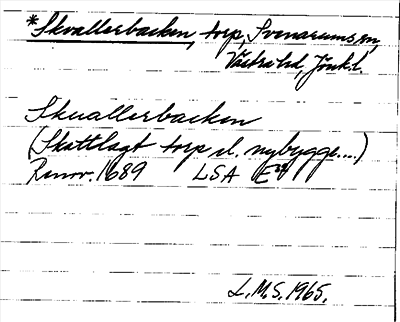 *Skvallerbacken, torp, Svenarums sn,
Västra hd, Jönk.l.
Skuallerbacken
(Skattlagt torp el. nybygge....)
Renov. 1689 LSA
L.M.S. 1965.